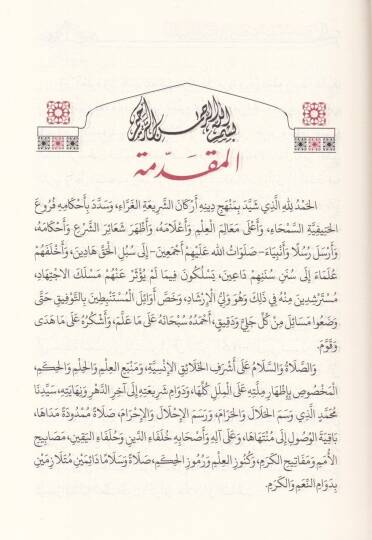 بسم الله الرحمن الرحيم
المقدمة
الحَمْدُ للهِ الَّذِي شَيَّدَ بِمَنْهَجِ دِينِهِ أَرْكَانَ الشَّرِيعَةِ الغَرَّاءِ، وَسَدَّدَ بِأَحْكَامِهِ فُرُوعَ
الحَنِيفِيَّةِ السَّمْحَاءِ، وَأَعْلَى مَعَالِمَ العِلْمِ وَأَعْلَامَهُ، وَأَظْهَرَ شَعَائِرَ الشَّرْعِ وَأَحْكَامَهُ،
وَأَرْسَلَ رُسُلًا وَأَنْبِيَاءَ -صَلَوَاتُ اللهِ عَلَيْهِمْ أَجْمَعِينَ- إِلَى سُبُلِ الحَقِّ هَادِينَ، وَأَخْلَفَهُمْ
عُلَمَاءَ إِلَى سَنَنِ سُنَنِهِمْ دَاعِينَ، يَسْلُكُونَ فِيمَا لَمْ يُؤْثَرْ عَنْهُمْ مَسْلَكَ الاجْتِهَادِ،
مُسْتَرْشِدِينَ مِنْهُ فِي ذَلِكَ وَهُوَ وَلِيُّ الإِرْشَادِ، وَخَصَّ أَوَائِلَ المُسْتَنْبِطِينَ بِالتَّوْفِيقِ حَتَّى
وَضَعُوا مَسَائِلَ مِنْ كُلِّ جَلِيٍّ وَدَقِيقٍ، أَحْمَدُهُ سُبْحَانَهُ عَلَى مَا عَلَّمَ، وَأَشْكُرُهُ عَلَى مَا هَدَى
وَقَوَّمَ.
وَالصَّلَاةُ وَالسَّلَامُ عَلَى أَشْرَفِ الخَلَائِقِ الإِنْسِيَّةِ، وَمَنْبَعِ العِلْمِ وَالحِلْمِ وَالحِكَمِ،
المَخْصُوصِ بِإِظْهَارِ مِلَّتِهِ عَلَى المِلَلِ كُلِّهَا، وَدَوَامِ شَرِيعَتِهِ إِلَى آخِرِ الدَّهْرِ وَنِهَايَتِهِ، سَيِّدِنَا
مُحَمَّدٍ الَّذِي وَسَمَ الحَلَالَ وَالحَرَامَ، وَرَسَمَ الإِحْلَالَ وَالإِحْرَامَ، صَلَاةً مَمْدُودَةً مَدَاهَا،
بَاقِيَةَ الوُصُولِ إِلَى مُنْتَهَاهَا، وَعَلَى آلِهِ وَأَصْحَابِهِ خُلَفَاءِ الدِّينِ وَحُلَفَاءِ اليَقِينِ، مَصَابِيحِ
الأُمَمِ وَمَفَاتِيحِ الكَرَمِ، وَكُنُوزِ العِلْمِ وَرُمُوزِ الحِكَمِ، صَلَاةً وَسَلَامًا دَائِمَيْنِ مُتَلَازِمَيْنِ
بِدَوَامِ النِّعَمِ وَالكَرَمِ.